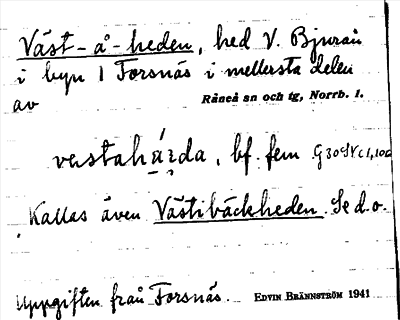 Väst-å-heden, hed V. Bjurån
i byn 1 Forsnäs i mellersta delen
av Råneå sn och tg, Norrb. l.
bf. fem G30SVc1,10a
Kallas även Västibäckheden. Se d.o.
Uppgiften från Forsnäs. EDVIN BRÄNNSTRÖM 1941